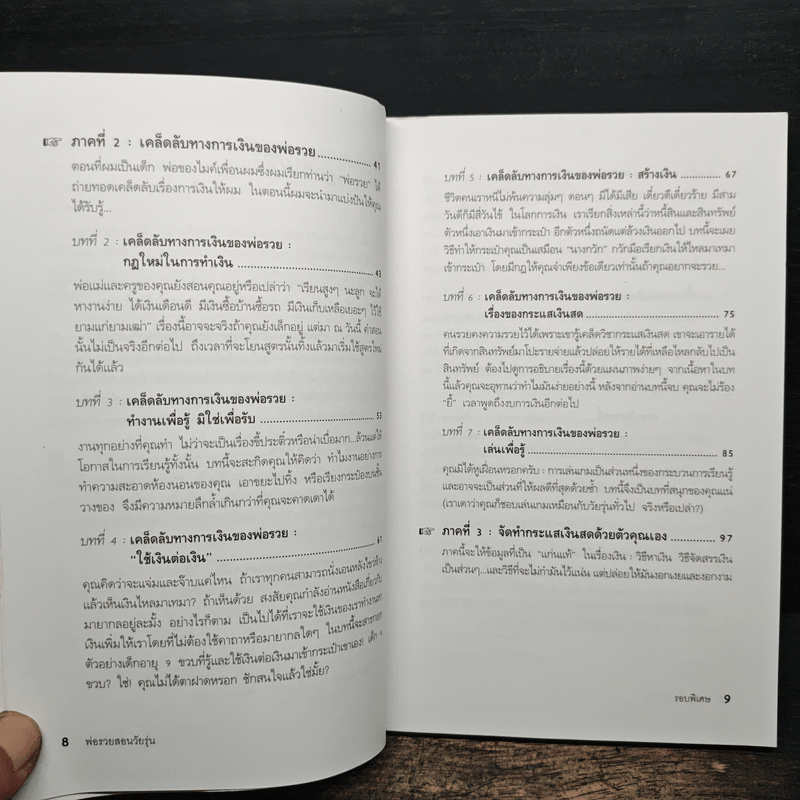 ☞ ภาคที่ 2 : เคล็ดลับทางการเงินของพ่อรวย .................. 41
ตอนที่ผมเป็นเด็ก พ่อของไมค์เพื่อนผมซึ่งผมเรียกท่านว่า "พ่อรวย" ได้
ถ่ายทอดเคล็ดลับเรื่องการเงินให้ผม ในตอนนี้ผมจะนำมาแบ่งปันให้คุณ
ได้รับรู้...
บทที่ 2 : เคล็ดลับทางการเงินของพ่อรวย :
กฎใหม่ในการทำเงิน .................. 43
พ่อแม่และครูของคุณยังสอนคุณอยู่หรือเปล่าว่า "เรียนสูงๆ นะลูก จะได้
หางานง่าย ได้เงินเดือนดี มีเงินซื้อบ้านซื้อรถ มีเงินเก็บเหลือเยอะๆ ไว้ใช้
ยามแก่ยามเฒ่า" เรื่องนี้อาจจะจริงถ้าคุณยังเล็กอยู่ แต่มา ณ วันนี้ คำสอน
นั้นไม่เป็นจริงอีกต่อไป ถึงเวลาที่จะโยนสูตรนั้นทิ้งแล้วมาเริ่มใช้สูตรใหม่
กันได้แล้ว
บทที่ 3 : เคล็ดลับทางการเงินของพ่อรวย :
ทำงานเพื่อรู้ มิใช่เพื่อรับ .................. 53
งานทุกอย่างที่คุณทำ ไม่ว่าจะเป็นเรื่องขี้ประติ๋วหรือน่าเบื่อมาก...ล้วนแต่ให้
โอกาสในการเรียนรู้ทั้งนั้น บทนี้จะสะกิดคุณให้คิดว่า ทำไมงานอย่างการ
ทำความสะอาดห้องนอนของคุณ เอาขยะไปทิ้ง หรือเรียงกระป๋องบนชั้น
วางของ จึงมีความหมายลึกล้ำเกินกว่าที่คุณจะคาดเดาได้
บทที่ 4 : เคล็ดลับทางการเงินของพ่อรวย :
"ใช้เงินต่อเงิน" .................. 61
คุณคิดว่าจะแจ่มและจ๊าบแค่ไหน ถ้าเราทุกคนสามารถนั่งเอนหลังไขว่ห้าง
แล้วเห็นเงินไหลมาเทมา? ถ้าเห็นด้วย สงสัยคุณกำลังอ่านหนังสือเกี่ยวกับ
มายากลอยู่ละมั้ง อย่างไรก็ตาม เป็นไปได้ที่เราจะใช้เงินของเราทำงานหา
เงินเพิ่มให้เราโดยที่ไม่ต้องใช้คาถาหรือมายากลใดๆ ในบทนี้จะสาธยาย
ตัวอย่างเด็กอายุ 9 ขวบที่รู้และใช้เงินต่อเงินมาเข้ากระเป๋าเขาเอง! เด็ก 9
ขวบ? ใช่! คุณไม่ได้ตาฝาดหรอก ชักสนใจแล้วใช่มั้ย?
8 พ่อรวยสอนวัยรุ่น
บทที่ 5 : เคล็ดลับทางการเงินของพ่อรวย : สร้างเงิน .............. 67
ชีวิตคนเราหนีไม่พ้นความลุ่มๆ ดอนๆ มีได้มีเสีย เดี๋ยวดีเดี๋ยวร้าย มีสาม
วันดีก็มีสี่วันไข้ ในโลกการเงิน เราเรียกสิ่งเหล่านี้ว่าหนี้สินและสินทรัพย์
ตัวหนึ่งเอาเงินมาเข้ากระเป๋า อีกตัวหนึ่งถนัดแต่ล้วงเงินออกไป บทนี้จะเผย
วิธีทำให้กระเป๋าคุณเป็นเสมือน "นางกวัก" กวักมือเรียกเงินให้ไหลมาเทมา
เข้ากระเป๋า โดยมีกฎให้คุณจำเพียงข้อเดียวเท่านั้นถ้าคุณอยากจะรวย...
บทที่ 6 : เคล็ดลับทางการเงินของพ่อรวย :
เรื่องของกระแสเงินสด .................. 75
คนรวยคงความรวยไว้ได้เพราะเขารู้เคล็ดวิชากระแสเงินสด เขาจะเอารายได้
ที่เกิดจากสินทรัพย์มาโปะรายจ่ายแล้วปล่อยให้รายได้ที่เหลือไหลกลับไปเป็น
สินทรัพย์ ต้องไปดูการอธิบายเรื่องนี้ด้วยแผนภาพง่ายๆ จากเนื้อหาในบท
นี้แล้วคุณจะอุทานว่าทำไมมันง่ายอย่างนี้ หลังจากอ่านบทนี้จบ คุณจะไม่ร้อง
"ยี้" เวลาพูดถึงงบการเงินอีกต่อไป
บทที่ 7 : เคล็ดลับทางการเงินของพ่อรวย :
เล่นเพื่อรู้ .................. 85
คุณมิได้หูเฝื่อนหรอกครับ : การเล่นเกมเป็นส่วนหนึ่งของกระบวนการเรียนรู้
และอาจจะเป็นส่วนที่ให้ผลดีที่สุดด้วยซ้ำ บทนี้จึงเป็นบทที่สนุกของคุณแน่
(เราเดาว่าคุณก็ชอบเล่นเกมเหมือนกับวัยรุ่นทั่วไป จริงหรือเปล่า?)
☞ ภาคที่ 3 : จัดทำกระแสเงินสดด้วยตัวคุณเอง .............. 97
ภาคนี้จะให้ข้อมูลที่เป็น "แก่นแท้" ในเรื่องเงิน : วิธีหาเงิน วิธีจัดสรรเงิน
เป็นส่วนๆ...และวิธีที่จะไม่กำมันไว้แน่น แต่ปล่อยให้มันงอกเงยและงอกงาม
รอบพิเศษ 9